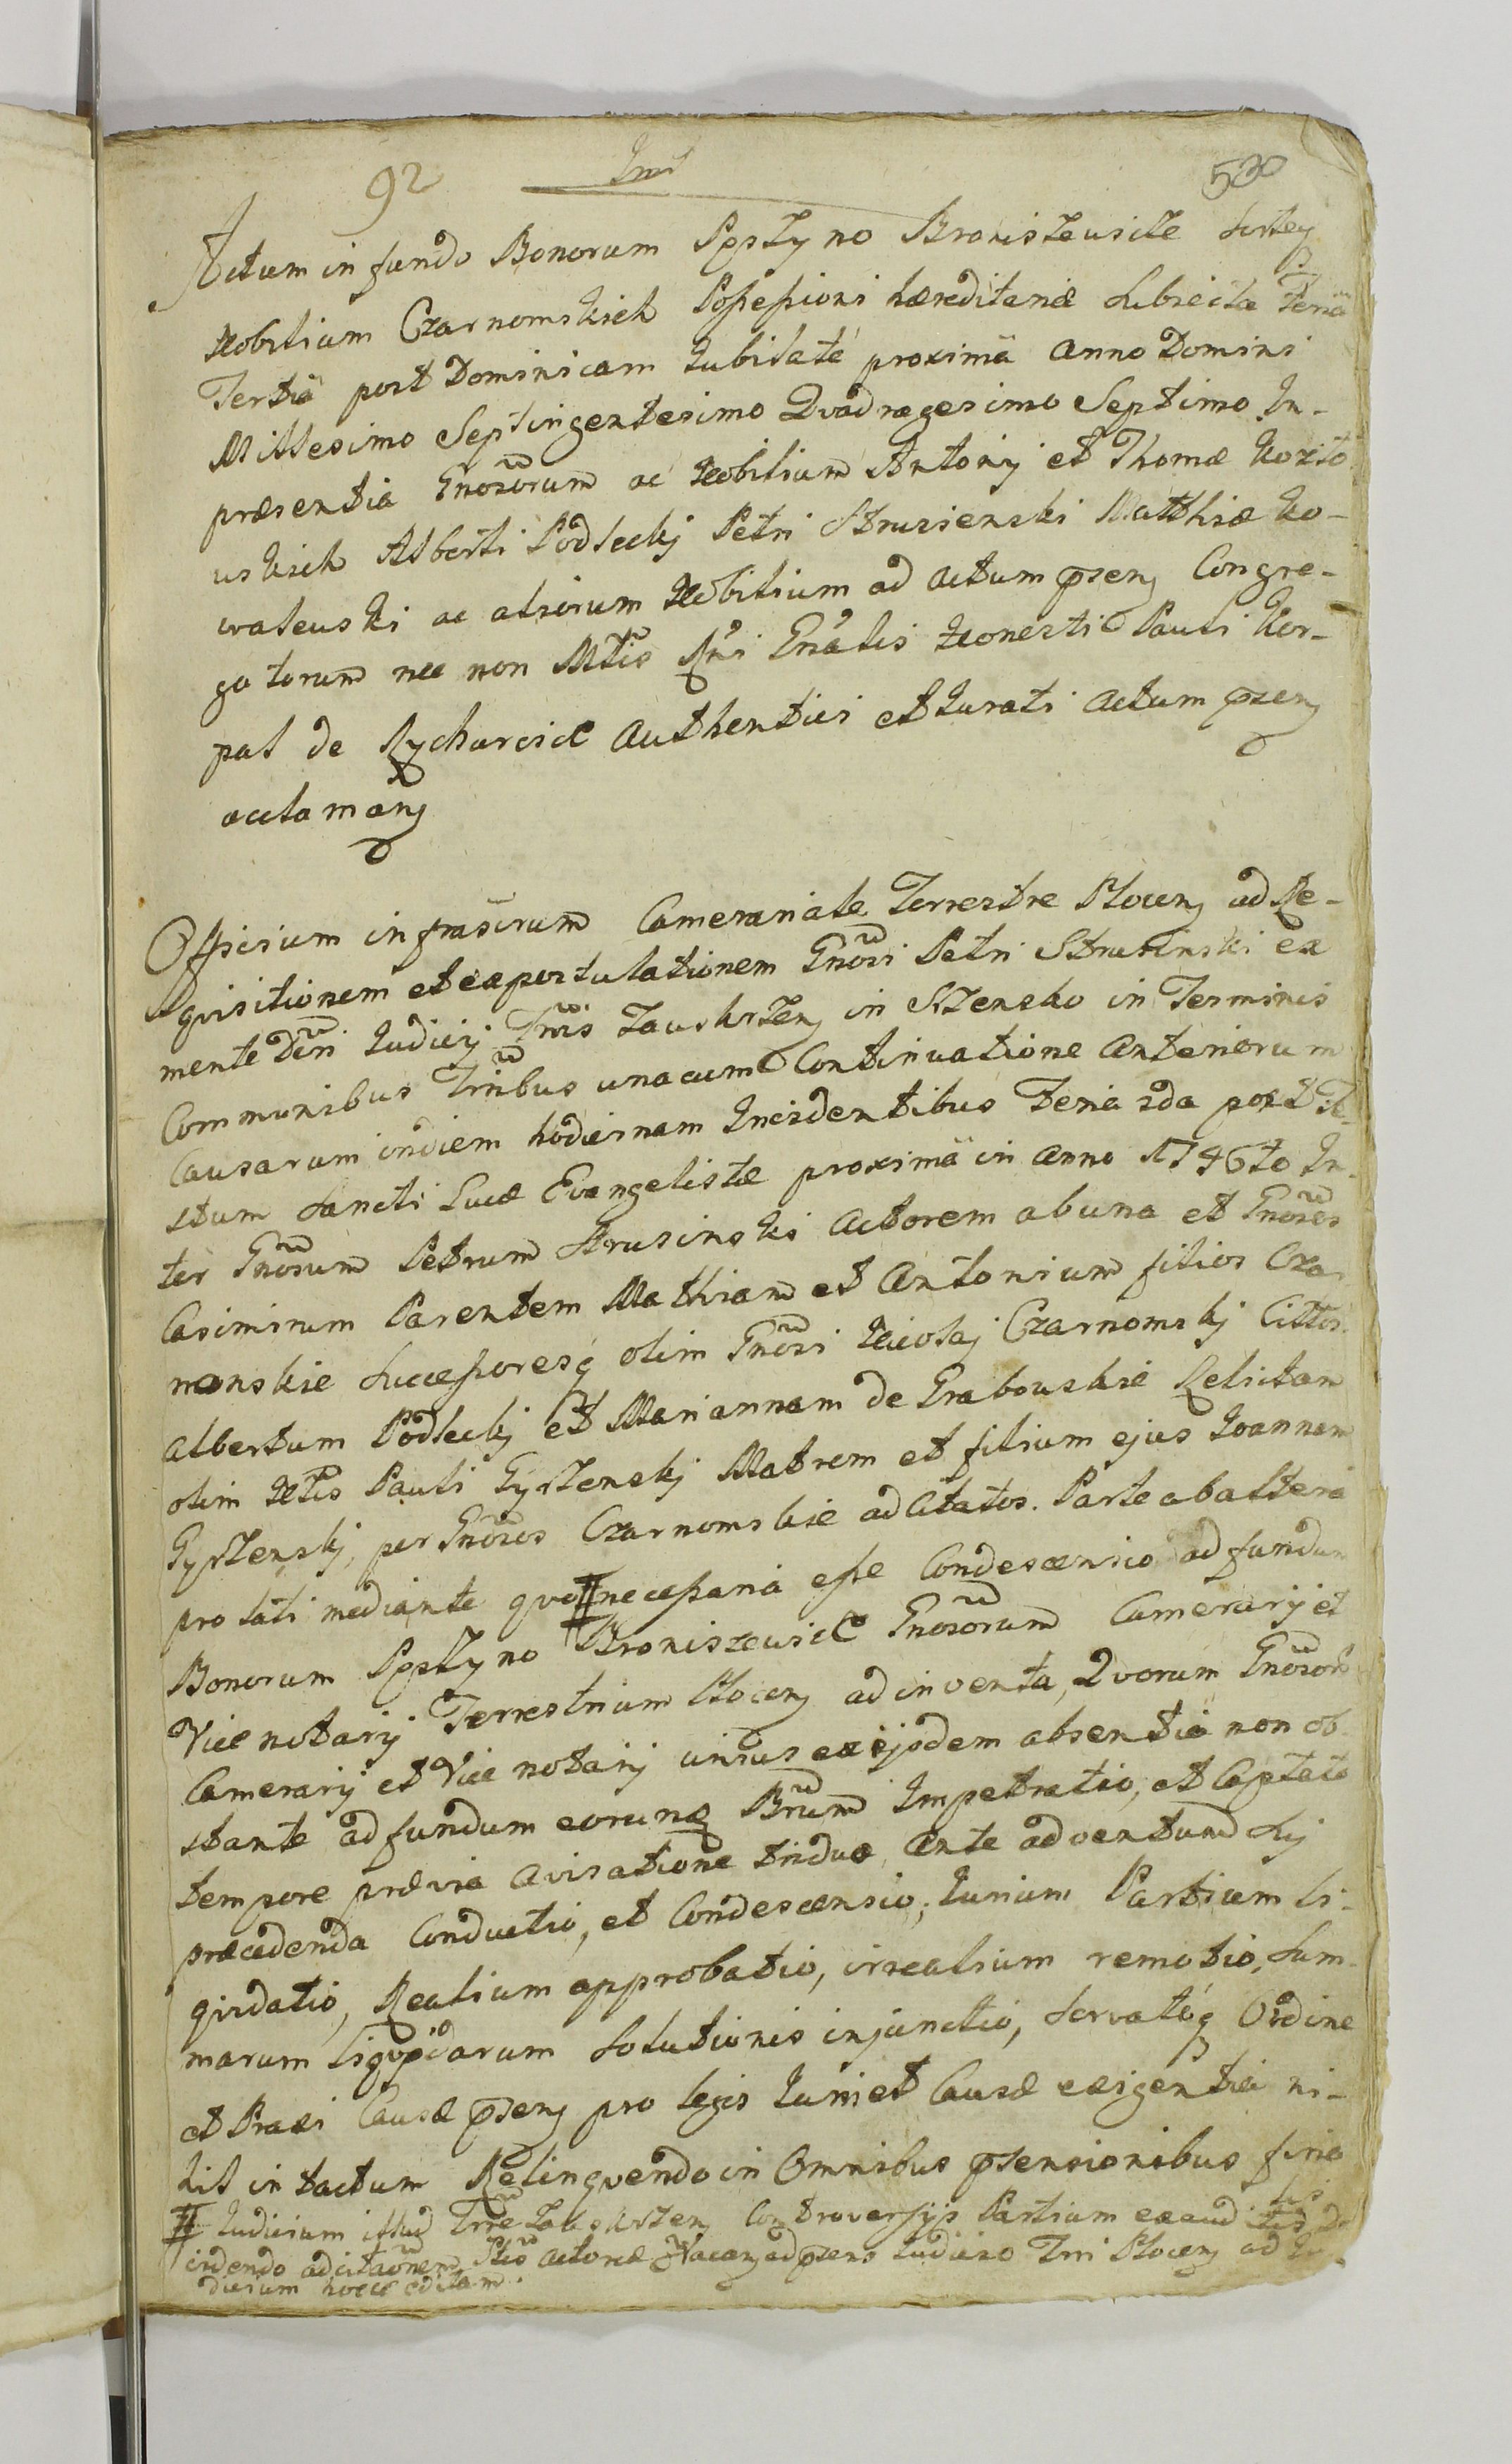 92 530
Actum in fundo Bonorum Pęszyno Broniszewicze Sortey
Nobilium Czarnomskich Possessioni hæreditariæ Subiecta Feria
Tertia post Dominicam Jubilate proxima Anno Domini
Millesimo Septingentesimo Quadragesimo Septimo In-
præsentia Gnosorum ac Nobilium Antonij et Thomæ Kozło
wskich Alberti Podleckj Petri Strusienski Matthiæ Ko-
walewski ac aliorum Nobilium ad Actum psens Congre-
gatorum nec non Mtis Rni Gnalis Honesti Pauli Kor-
pal de Rycharcice Authentici et Jurati Actum psens
acclamans
Officium infrascrum Camerariale Terrestre Plocens ad Re-
quisitionem et expostulationem Gnosi Petri Strusinski ex
mente Dcri Judicij Trris Zawskrzens in Szrensko in Terminis
Communibus Trribus unacum Continuatione Anteriorum
Causarum in diem hodiernam Incidentibus Feria 2da post Fe-
stum Sancti Lucæ Evangelistæ proxima in Anno 1746to In-
ter Gnosum Petrum Strusinski Actorem ab una et Gnosos
Casimirum Parentem Mathiam et Antonium filios Czar
nomskie Successoresq olim Gnosi Nicolaj Czarnomskj Cittos.
Albertum Podleckj et Mariannam de Grabowskie Relictam
olim Nlis Pauli Gyszenskj Matrem et filium ejus Joannem
Gyszenskj, per Gnosos Czarnomskie adcitatos. Parte ab altera
prolati mediante quo # necessaria esse Condescensio ad fundum
Bonorum Pęszyno Broniszewice Gnosorum Camerarij et
Vice notarij Terrestrium Plocens adinventa, Quorum Gnosorum
Camerarij et Vice notarij unius ex ijsdem absentia non ob-
stante ad fundum eorunq Bnrum Impetratio, et Captato
tempore prævia avisatione triduo, ante adventum Sij
præcedenda Conductio, et Condescensio, Jurium Partium li-
quidatio, Realium approbatio, irrealium remotio, Sum-
marum liquidarum Solutionis injunctio, Servatoq Ordine
et Praxi Causæ psens pro legis Juris et Causæ exigentia ni-
hil intactum Relinquendo in Omnibus ptensionibus finio
# Judicium istud Trre Zawskrzens Controversijs Partium exauditis
cidendo adcitaonem Ptis Actoreæ
dicium hocce editam.